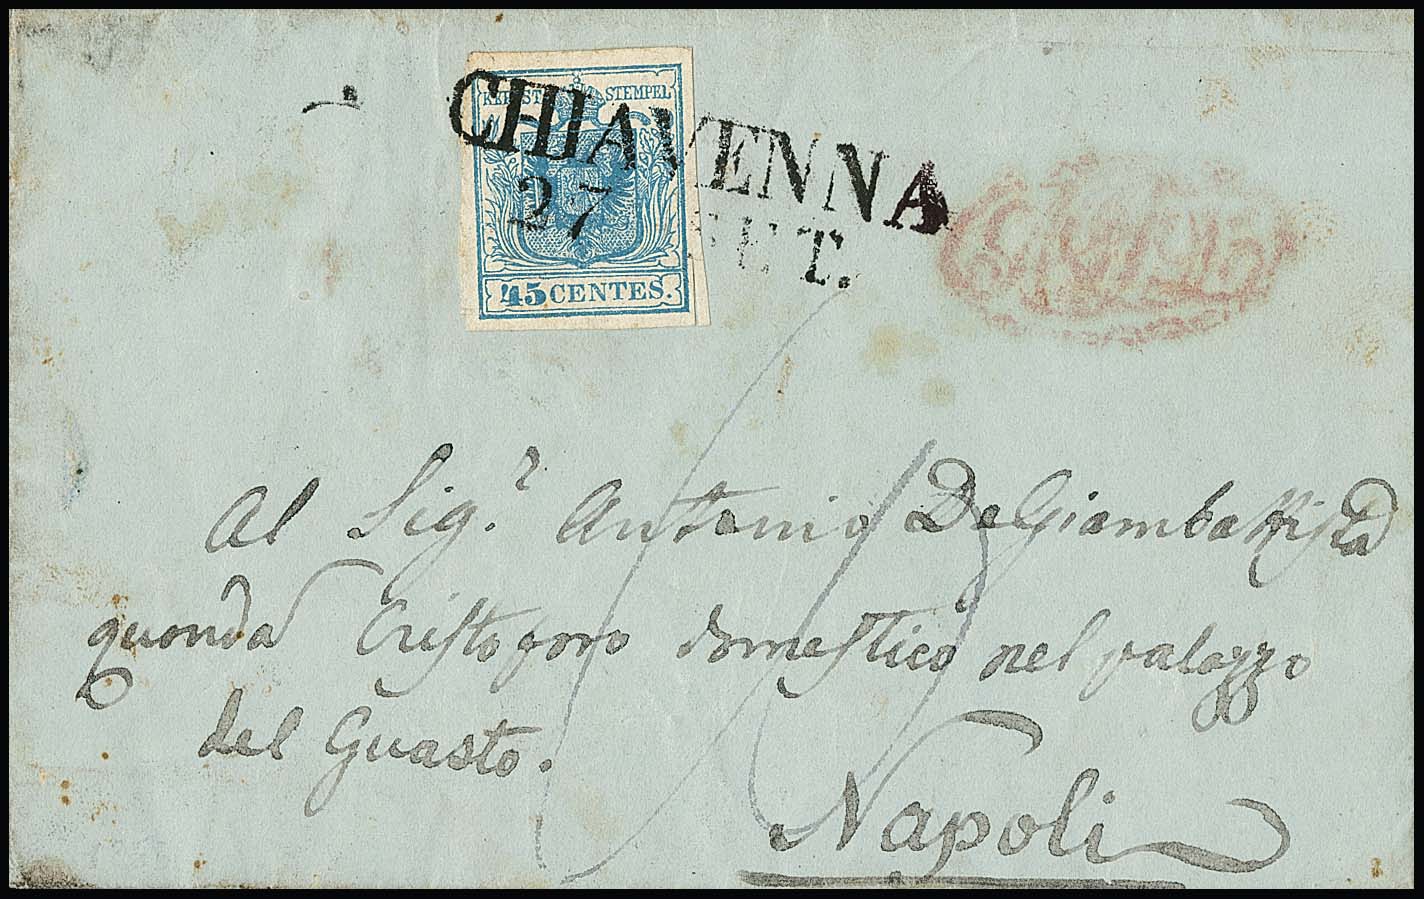 KKPOST STEMPEL
CHIAVENNA
27 SET.
45 CENTES.
Al Sig.r Antonio DeGiambattista
quonda Cristoforo domestico nel palazzo
del Guasto.
Napoli